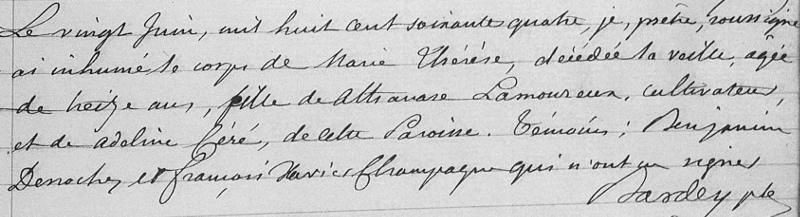 Le vingt Juin, mil huit cent soixante quatre, je, prêtre, soussigné
ai inhumé le corps de Marie Thérèse, décédée la veille, agée
de treize ans, fille de Athanase Lamoureux, cultivateur,
et de Adeline Céré, de cette Paroisse. Témoins; Benjamin
Desroches et François Xavier Champagne qui n'ont su signer
Tardey ptre